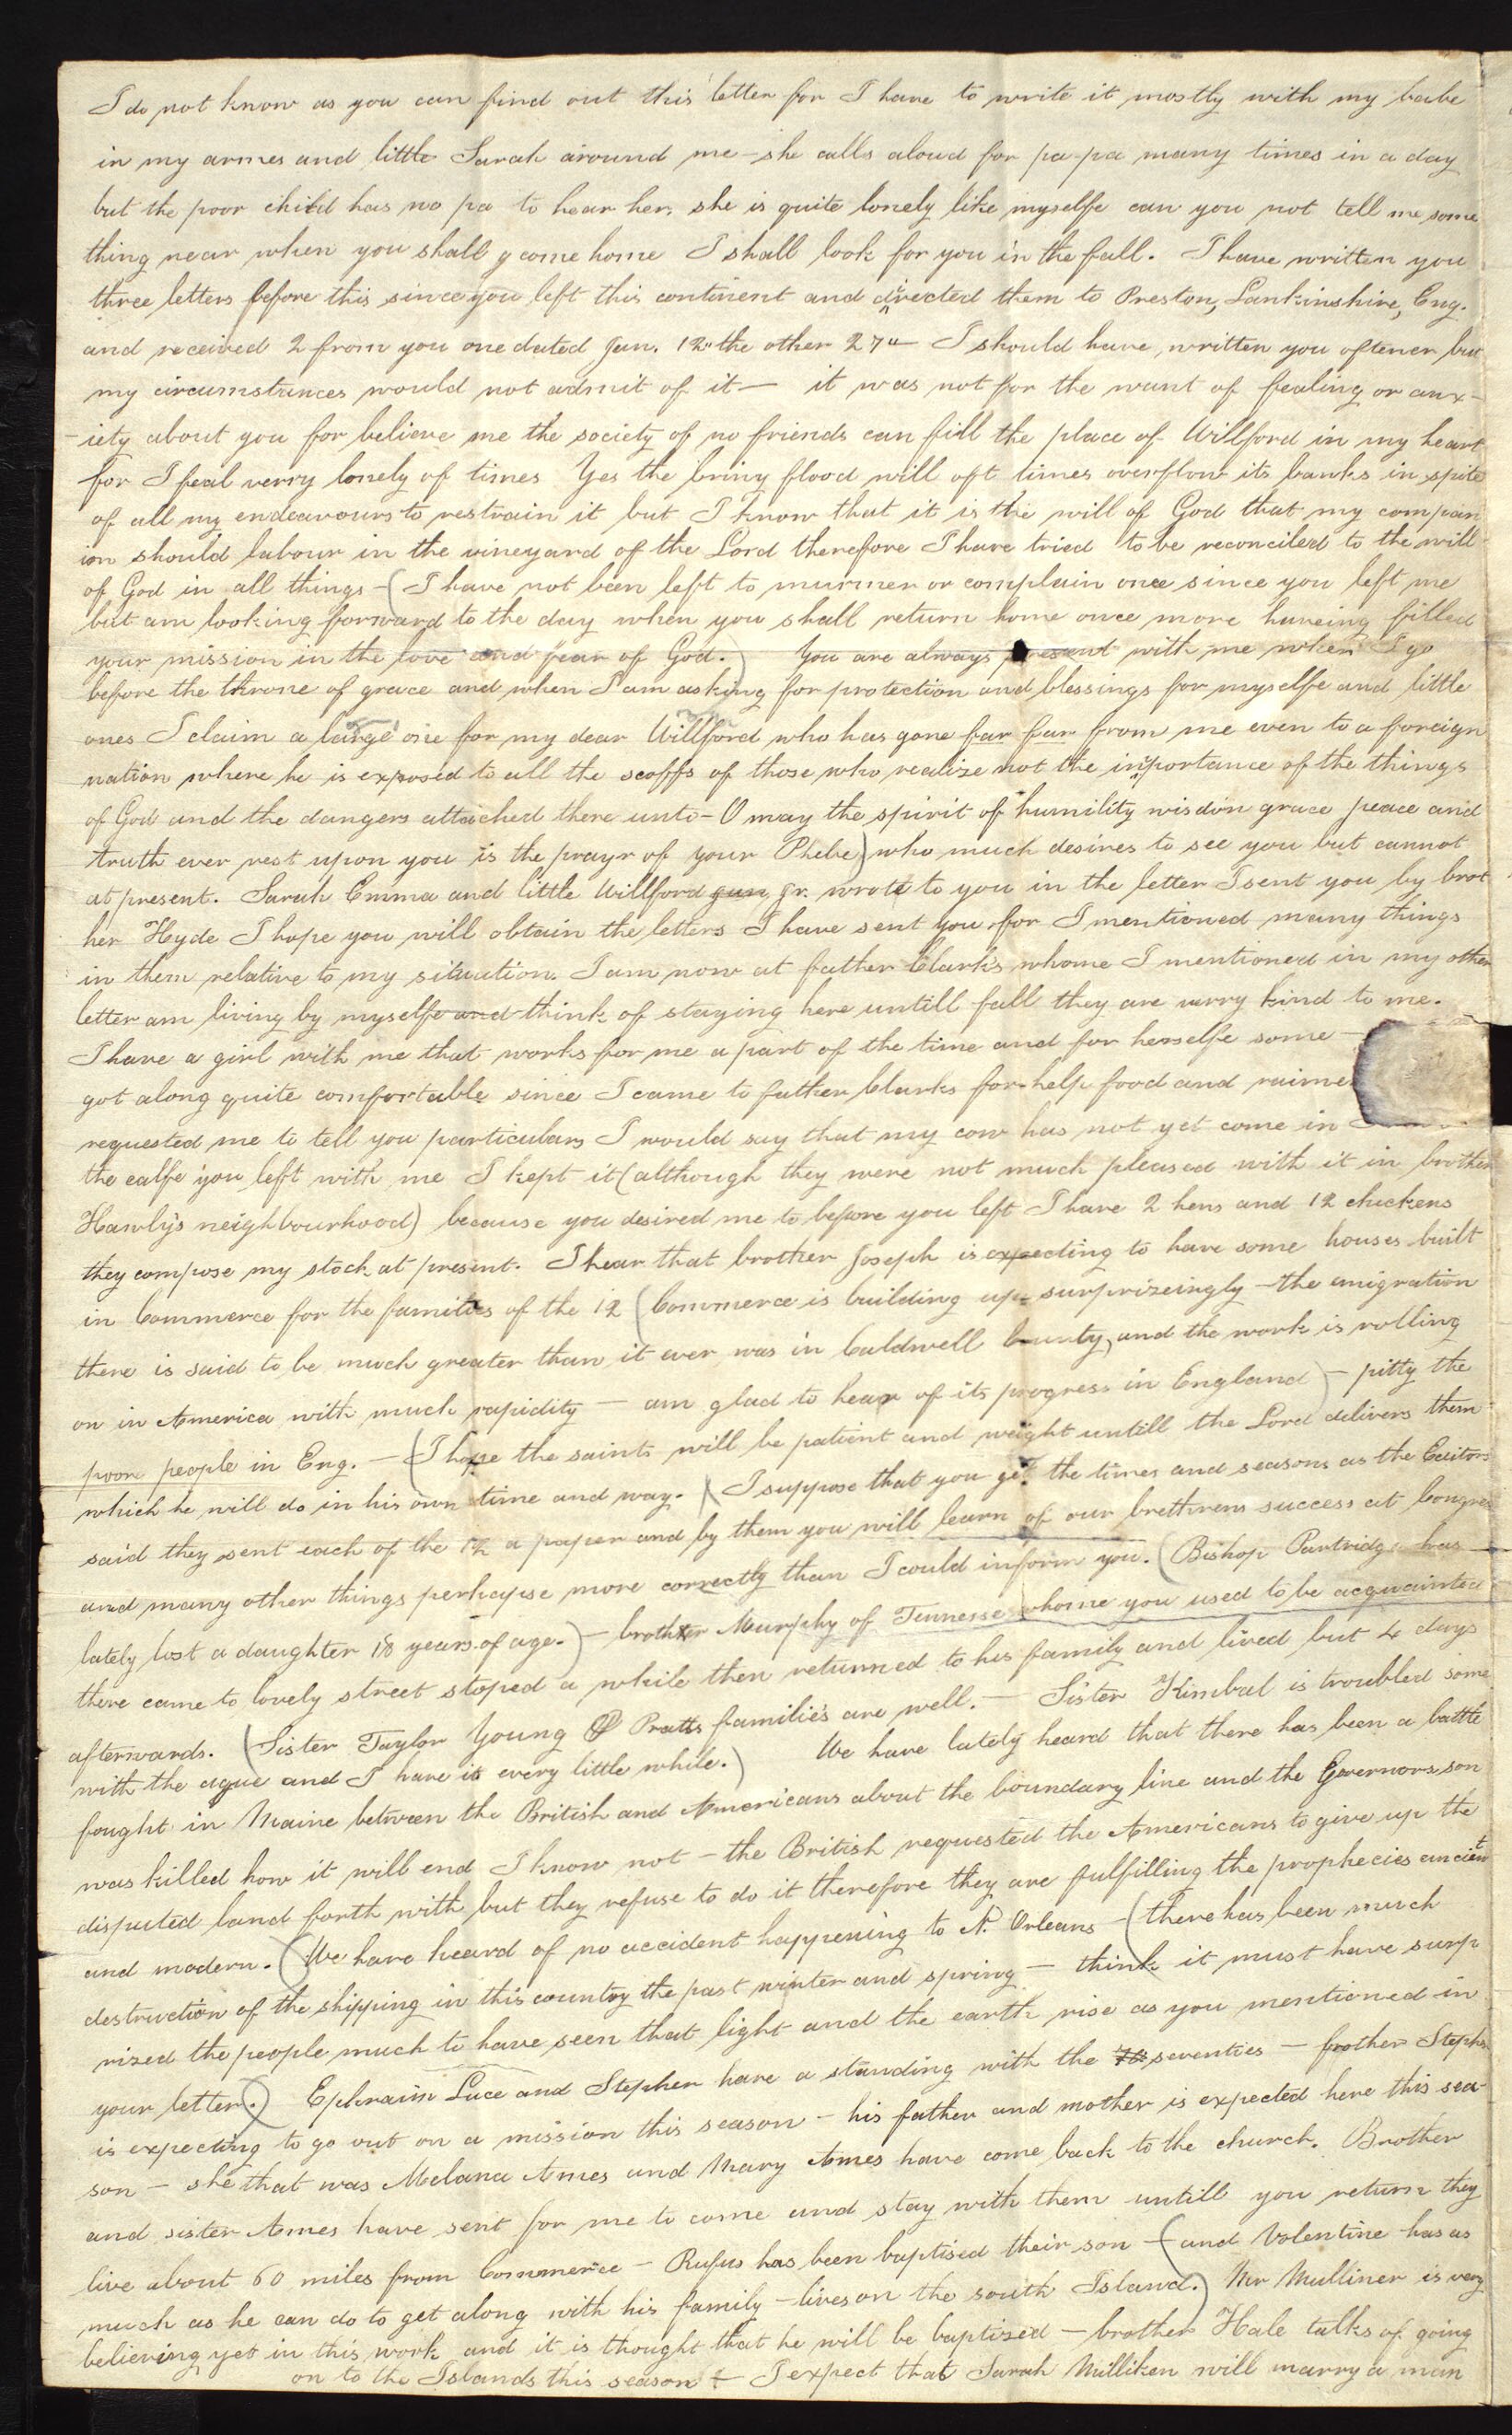 I do not know as you can find out this letter for I have to write it mostly with my babe
in my armes and little Sarah around me - she calls aloud for pa-pa many times in a day
but the poor child has no pa to hear her, she is quite lonely like myselfe can you not tell me some
thing near when you shall come home I shall look for you in the fall. I have written you
three letters before this since you left this continent and directed them to Preston, Lankinshire, Eng.
and received 2 from you one dated Jan. 12" the other 27" - I should have written you oftener but
my circumstances would not admit of it - it was not for the want of fealing or anx-
-iety about you for believe me the society of no friends can fill the place of Willford in my heart
for I feal verry lonely of times Yes the briny flood will oft times overflow its banks in spite
of all my endeavours to restrain it but I know that it is the will of God that my compan
ion should labour in the vineyard of the Lord therefore I have tried to be reconciled to the will
of God in all things - (I have not been left to murmer or complain once since you left me
but am looking forward to the day when you shall return home once more haveing filled
your mission in the love and fear of God.) You are always present with me when I go
before the throne of grace and when I am asking for protection and blessings for myselfe and little
ones I claim a large one for my dear Willford who has gone far far from me even to a foreign
nation where he is exposed to all the scoffs of those who realize not the importance of the things
of God and the dangers attached there unto - O may the spirit of humility wisdom grace peace and
truth ever rest upon you is the prayr of your Phebe) who much desires to see you but cannot
at present. Sarah Emma and little Willford jun jr. wrote to you in the letter I sent you by brot
her Hyde I hope you will obtain the letters I have sent you for I mentioned many things
in them relative to my situation. I am now at father Clark's whome I mentioned in my other
letter am living by myselfe and think of staying here untill fall they are verry kind to me.
I have a girl with me that works for me a part of the time and for herselfe some -
got along quite comfortable since I came to father Clarks for help food and raime
requested me to tell you particulars I would say that my cow has not yet come in
the calfe you left with me I kept it (although they were not much pleased with it in brother
Hawly's neighbourhood) because you desired me to before you left I have 2 hens and 12 chickens
they compose my stock at present. I hear that brother Joseph is expecting to have some houses built
in Commerce for the families of the 12 (Commerce is building up surprizeingly - the emigration
there is said to be much greater than it ever was in Caldwell County, and the work is rolling
on in America with much rapidity - am glad to hear of its progress in England) - pitty the
poore people in Eng. - (I hope the saints will be patient and weight untill the Lord delivers them
which he will do in his own time and way. ( I suppose that you get the times and seasons as the Editors
said they sent each of the 12 a paper and by them you will learn of our brethrens success at Congress
and many other things perhapse more correctly than I could inform you. (Bishop Partridge has
lately lost a daughter 18 years of age.) - brother Murphy of Tennesse whome you used to be acquainted
there came to lovely street stoped a while then returned to his family and lived but 4 days
afterwards. (Sister Taylor Young & Pratts families are well. - Sister Kimbal is troubled some
with the ague and I have it every little while.) We have lately heard that there has been a battle
fought in Maine between the British and Americans about the boundary line and the Governors son
was killed how it will end I know not - the British requested the Americans to give up the
disputed land forth with but they refuse to do it therefore they are fulfilling the prophecies ancient
and modern. (We have heard of no accident happening to N. Orleans - (there has been much
destruction of the shipping in this country the past winter and spring - think it must have surp
rized the people much to have seen that light and the earth rise as you mentioned in
your letter.) Ephraim Luce and Stephen have a standing with the 70s seventies - brother Stephen
is expecting to go out on a mission this season - his father and mother is expected here this sea-
son - she that was Melana Ames and Mary Ames have come back to the church. Brother
and sister Ames have sent for me to come and stay with them untill you return they
live about 60 miles from Commerce - Rufus has been baptised their son - (and Valentine has as
much as he can do to get along with his family - lives on the south Island.) Mr Mulliner is very
believing yet in this work and it is thought that he will be baptized - brother Hale talks of going
on to the Islands this season - I expect that Sarah Milliken will marry a man